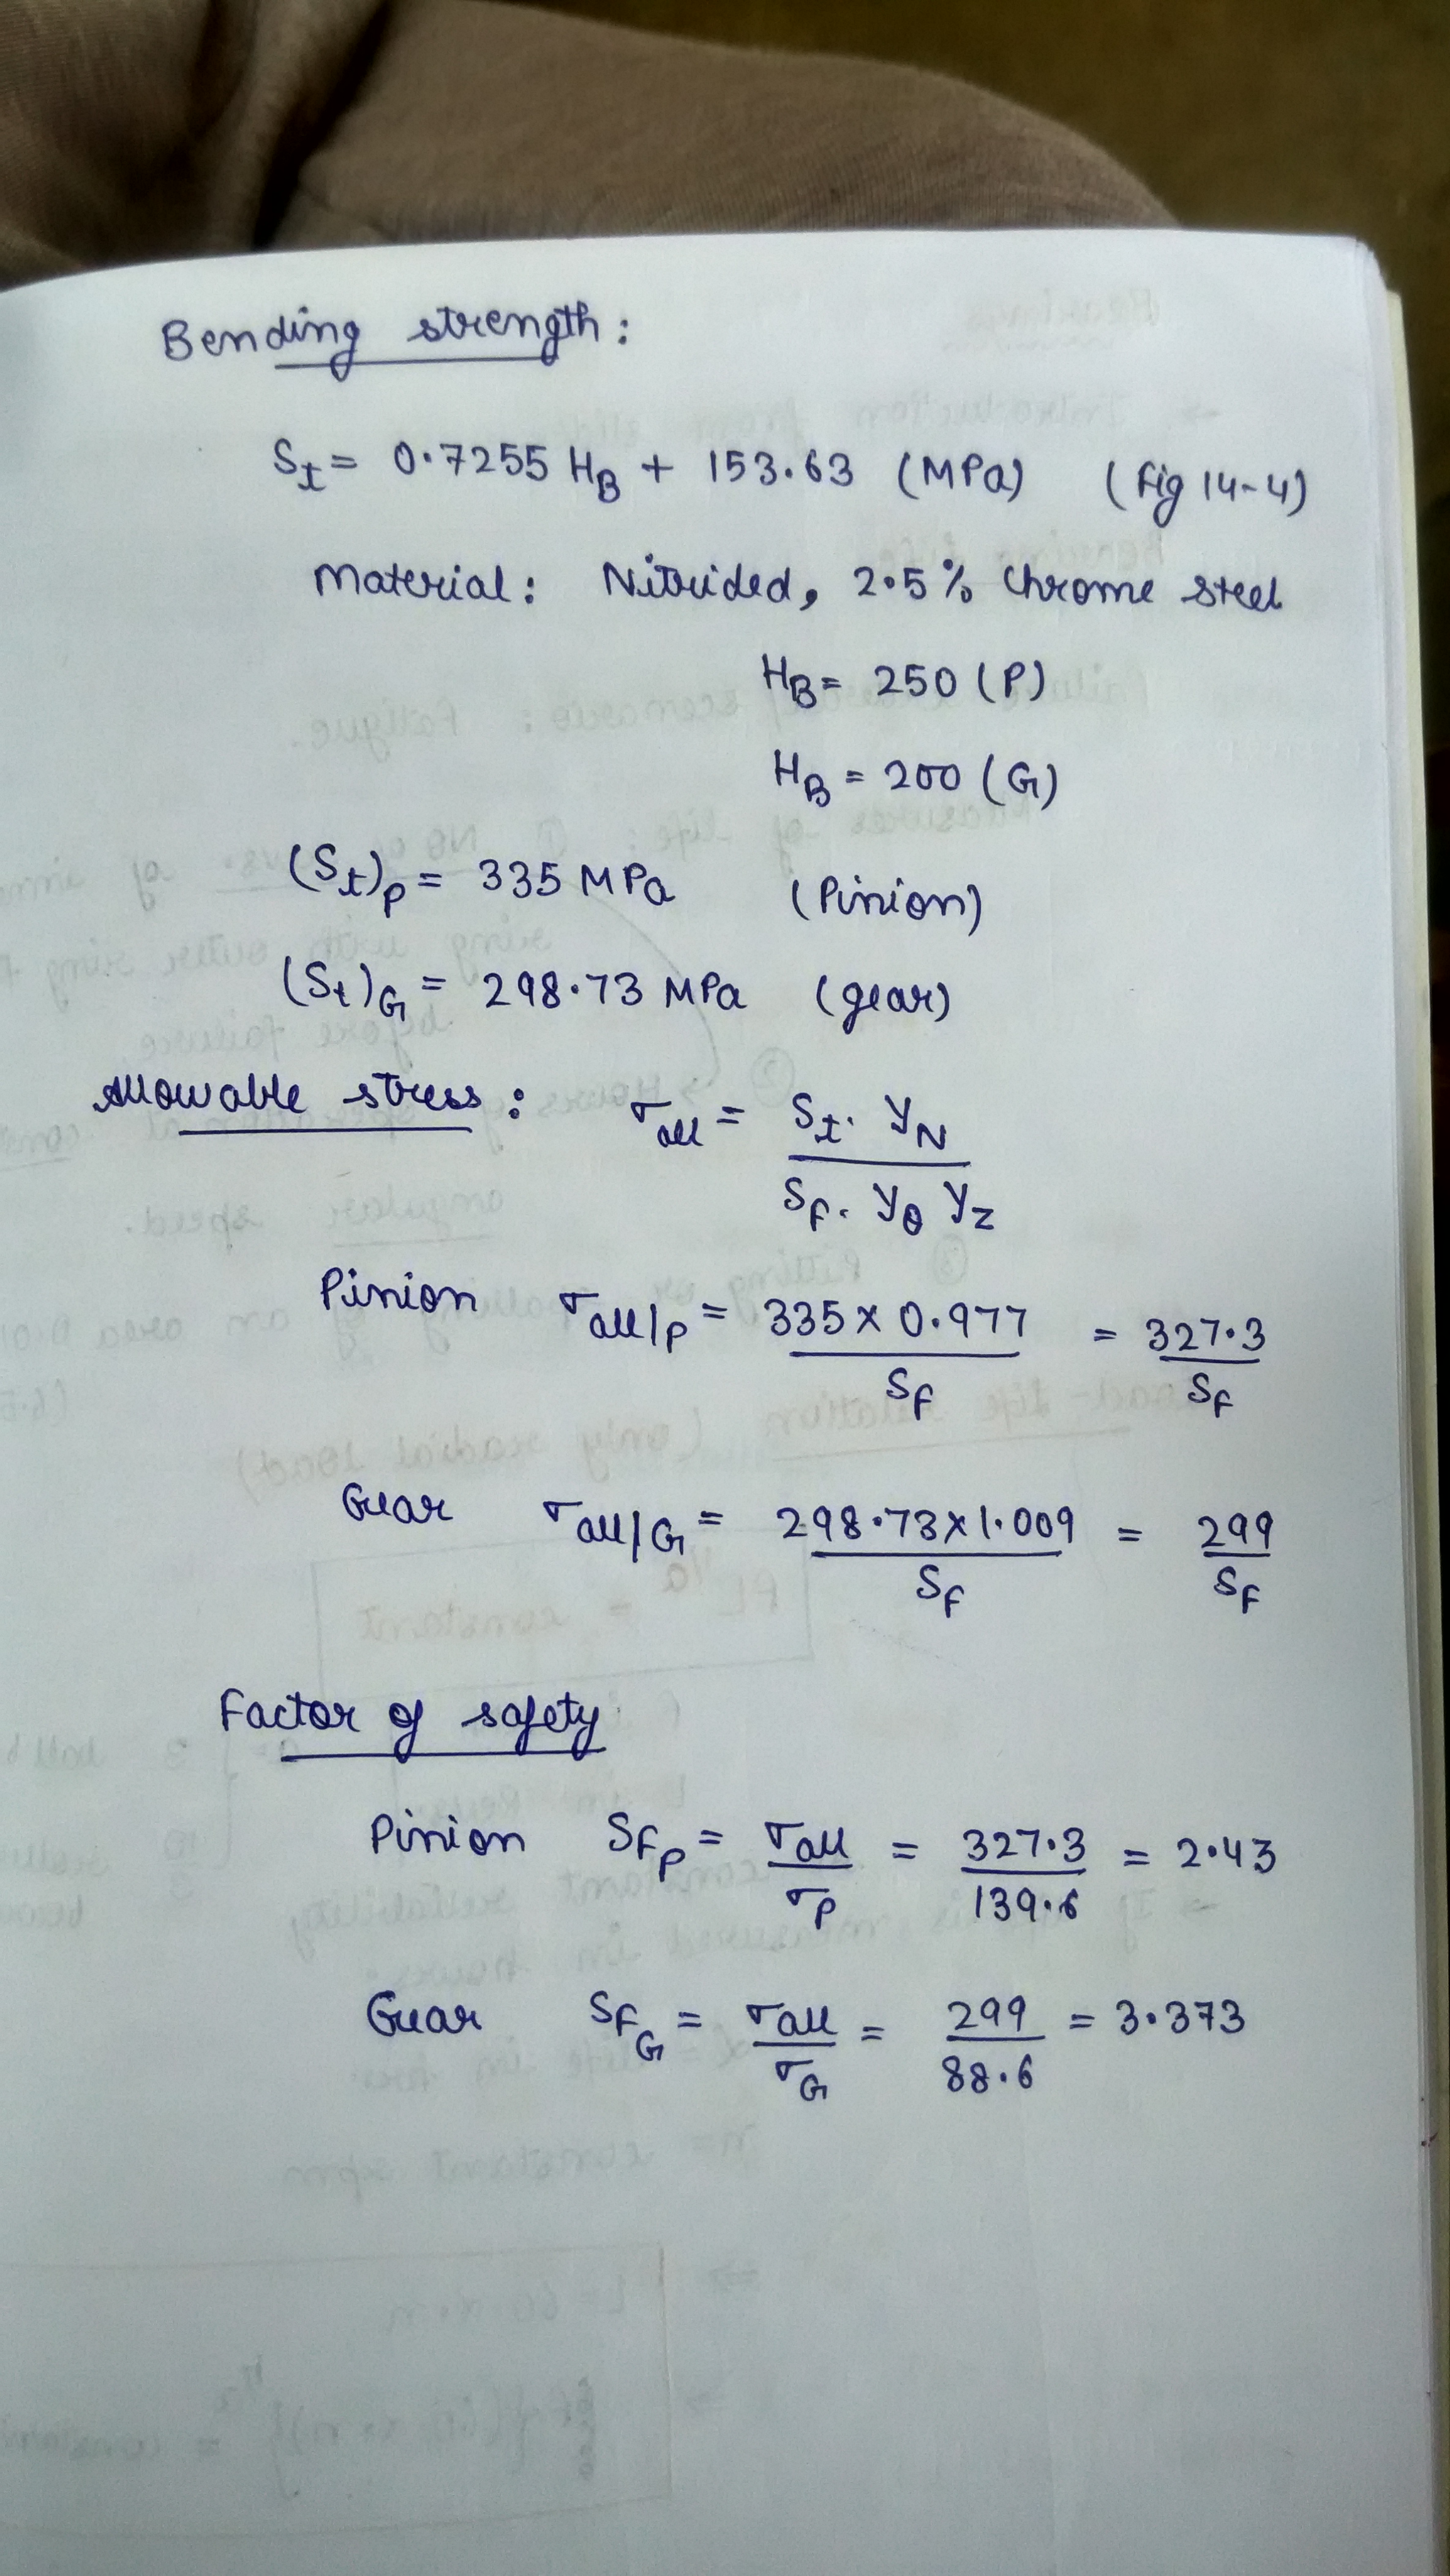 Bending strength:
S_t = 0.7255 H_B + 153.63 (MPa) (Fig 14-4)
Material: Nitrided, 2.5% Chrome steel
H_B = 250 (P)
H_B = 200 (G)
(S_t)_P = 335 MPa (Pinion)
(S_t)_G = 298.73 MPa (gear)
Allowable stress: σ_all = S_t. Y_N / S_F. Y_θ Y_Z
Pinion σ_all/P = 335 × 0.977 / S_F = 327.3 / S_F
Gear σ_all/G = 298.73 × 1.009 / S_F = 299 / S_F
Factor of safety
Pinion S_F_P = σ_all / σ_P = 327.3 / 139.6 = 2.43
Gear S_F_G = σ_all / σ_G = 299 / 88.6 = 3.373